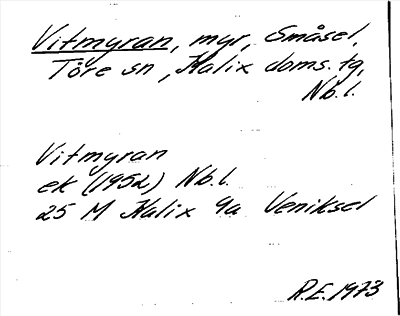 Vitmyran, myr, Småsel,
Töre sn, Kalix doms. tg,
Nb.l.
Vitmyran
ek (1952) Nb.l.
25 M Kalix 9a Veniksel
R.E. 1973